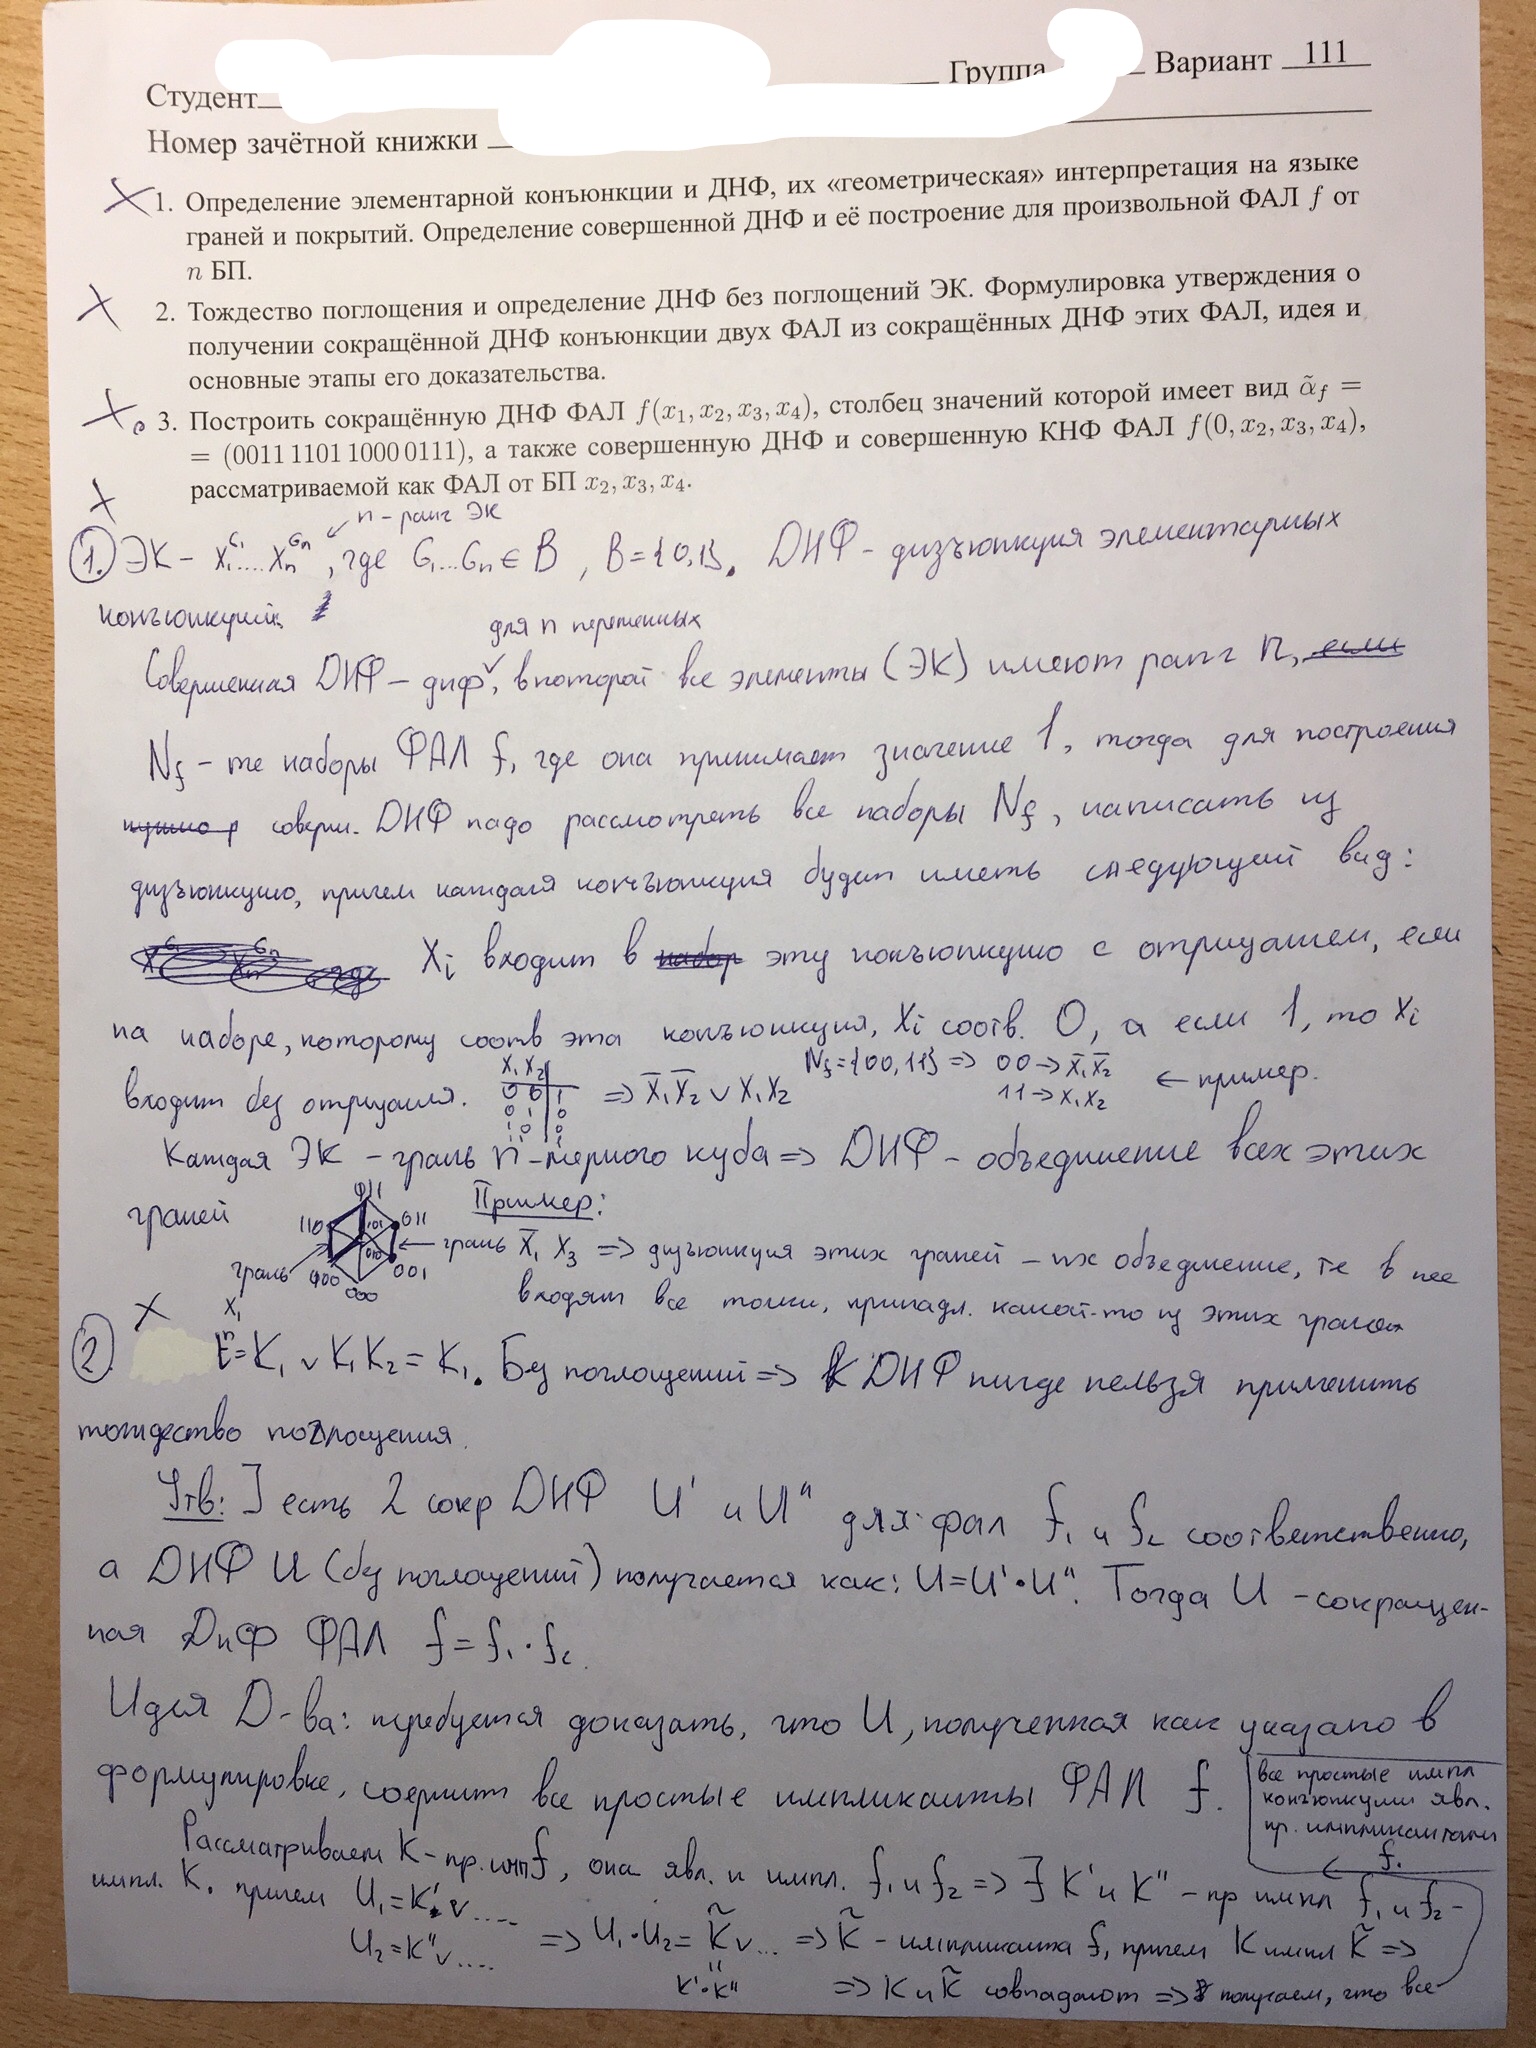 Студент
Группа Вариант 111
Номер зачётной книжки
1. Определение элементарной конъюнкции и ДНФ, их «геометрическая» интерпретация на языке
граней и покрытий. Определение совершенной ДНФ и её построение для произвольной ФАЛ f от
n БП.
2. Тождество поглощения и определение ДНФ без поглощений ЭК. Формулировка утверждения о
получении сокращённой ДНФ конъюнкции двух ФАЛ из сокращённых ДНФ этих ФАЛ, идея и
основные этапы его доказательства.
3. Построить сокращённую ДНФ ФАЛ f(x₁, x₂, x₃, x₄), столбец значений которой имеет вид α̃_f =
= (0011 1101 1000 0111), а также совершенную ДНФ и совершенную КНФ ФАЛ f(0, x₂, x₃, x₄),
рассматриваемой как ФАЛ от БП x₂, x₃, x₄.
n - ранг ЭК
1. ЭК - X₁^σ₁....Xₙ^σₙ, где σ₁...σₙ ∈ B, B={0,1}. ДНФ - дизъюнкция элементарных
конъюнкций.
для n переменных
Совершенная ДНФ - днф, в которой все элементы (ЭК) имеют ранг n,
N_f - те наборы ФАЛ f, где она принимает значение 1, тогда для построения
соверш. ДНФ надо рассмотреть все наборы N_f, написать из
дизъюнкцию, причем каждая конъюнкция будет иметь следующий вид:
Xᵢ входит в эту конъюнкцию с отрицанием, если
на наборе, которому соотв эта конъюнкция, Xᵢ соотв. 0, а если 1, то Xᵢ
входит без отрицания.
X₁ X₂
0 0 1
0 1 0
1 0 0
1 1 1
=> X̄₁X̄₂ ∨ X₁X₂
N_f={00,11} => 00→X̄₁X̄₂
11→X₁X₂
← пример.
Каждая ЭК - грань n-мерного куба => ДНФ - объединение всех этих
граней
Пример:
111
110 101 011
010
100 001
000
грань
X₁
← грань X̄₁ X₃ => дизъюнкция этих граней - их объединение, те в нее
входят все точки, принадл. какой-то из этих граней
2. K₁ ∨ K₁K₂ = K₁. Без поглощений => К ДНФ нигде нельзя применить
тождество поглощения.
Утв: ] есть 2 сокр ДНФ U' и U" для фал f₁ и f₂ соответственно,
а ДНФ U (без поглощений) получается как: U=U'·U". Тогда U - сокращен-
ная ДНФ ФАЛ f = f₁·f₂.
Идея Д-ва: требуется доказать, что U, полученная как указано в
формулировке, содержит все простые импликанты ФАЛ f.
все простые импл
конъюнкции явл.
пр. импликантами
f.
Рассматриваем K - пр. имп f, она явл. и импл. f₁ и f₂ => ∃ K' и K" - пр импл f₁ и f₂ -
импл. K. причем U₁=K'∨....
U₂=K"∨....
=> U₁·U₂= K̃∨... => K̃ - импликанта f, причем K импл K̃ =>
K'·K"
=> K и K̃ совпадают => получаем, что все